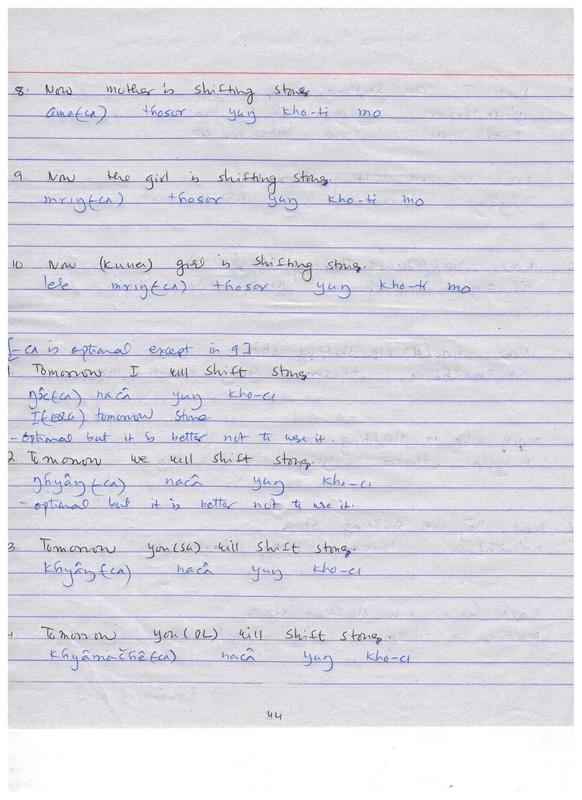 8. Now mother is shifting stones
ama(-cʌ) thosor yuŋ kho-ti mo
9 Now the girl is shifting stones.
mriŋ(-cʌ) thosor yuŋ kho-ti mo
10 Now (Kuner) girl is shifting stones.
lese mriŋ(-cʌ) thosor yuŋ kho-ti mo
[-cʌ is optional except in 9]
1. Tomorrow I will shift stones
ŋâc(-cʌ) nacâ yuŋ kho-cʌ
I(ERG) tomorrow stone
- optional but it is better not to use it.
2. Tomorrow we will shift stones.
ŋhyâŋ(-cʌ) nacâ yuŋ kho-cʌ
- optional but it is better not to use it.
3. Tomorrow you(SG) will shift stones.
khyâŋ(-cʌ) nacâ yuŋ kho-cʌ
Tomorrow you(DL) will shift stones.
khyâmačhê(-cʌ) nacâ yuŋ kho-cʌ
44